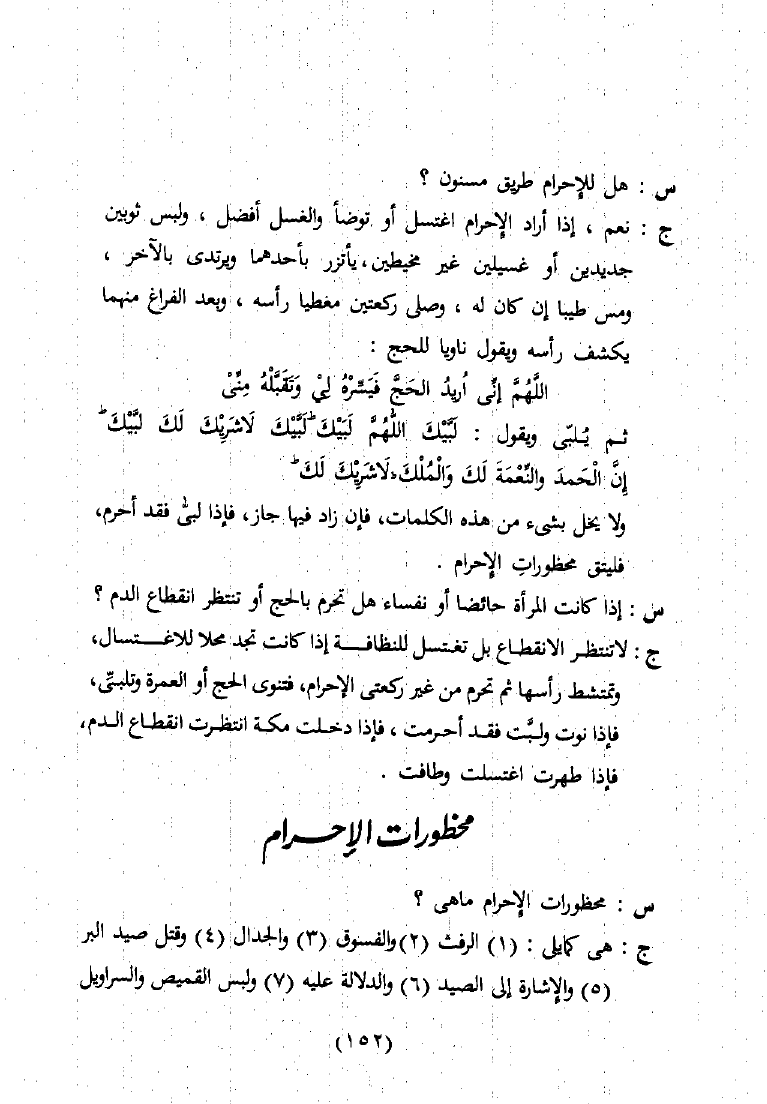 س : هل للإحرام طريق مسنون ؟
ج : نعم ، إذا أراد الإحرام اغتسل أو توضأ والغسل أفضل ، ولبس ثوبين
جديدين أو غسيلين غير مخيطين، يأتزر بأحدهما ويرتدى بالآخر ،
ومس طيبا إن كان له ، وصلى ركعتين مغطيا رأسه ، وبعد الفراغ منهما
يكشف رأسه ويقول ناويا للحج :
اللَّهُمَّ إنِّى أُريدُ الحَجَّ فَيَسِّرْهُ لِيْ وَتَقَبَّلْهُ مِنِّىْ
ثم يُلبّى ويقول : لَبَّيْكَ اللّٰهُمَّ لَبَّيْكَ ؕ لَبَّيْكَ لَاشَرِيْكَ لَكَ لَبَّيْكَ ؕ
إِنَّ الْحَمدَ والنِّعْمَةَ لَكَ وَالْمُلْكَ، لَاشَرِيْكَ لَكَ ؕ
ولا يخل بشىء من هذه الكلمات، فإن زاد فيها جاز، فإذا لبىّٰ فقد أحرم،
فليتق محظوراتِ الإحرام .
س : إذا كانت المرأة حائضا أو نفساء هل تحرم بالحج أو تنتظر انقطاع الدم ؟
ج : لاتنتظر الانقطاع بل تغتسل للنظافة إذا كانت تجد محلا للاغتسال،
وتمتشط رأسها ثم تحرم من غير ركعتى الإحرام، فتنوى الحج أو العمرة وتلبىِّ،
فإذا نوت ولبَّت فقد أحرمت ، فإذا دخلت مكة انتظرت انقطاع الدم،
فإذا طهرت اغتسلت وطافت .
محظورات الإحرام
س : محظورات الإحرام ماهى ؟
ج : هى كمايلى : (١) الرفث (٢) والفسوق (٣) والجدال (٤) وقتل صيد البر
(٥) والإشارة إلى الصيد (٦) والدلالة عليه (٧) ولبس القميص والسراويل
(١٥٢)